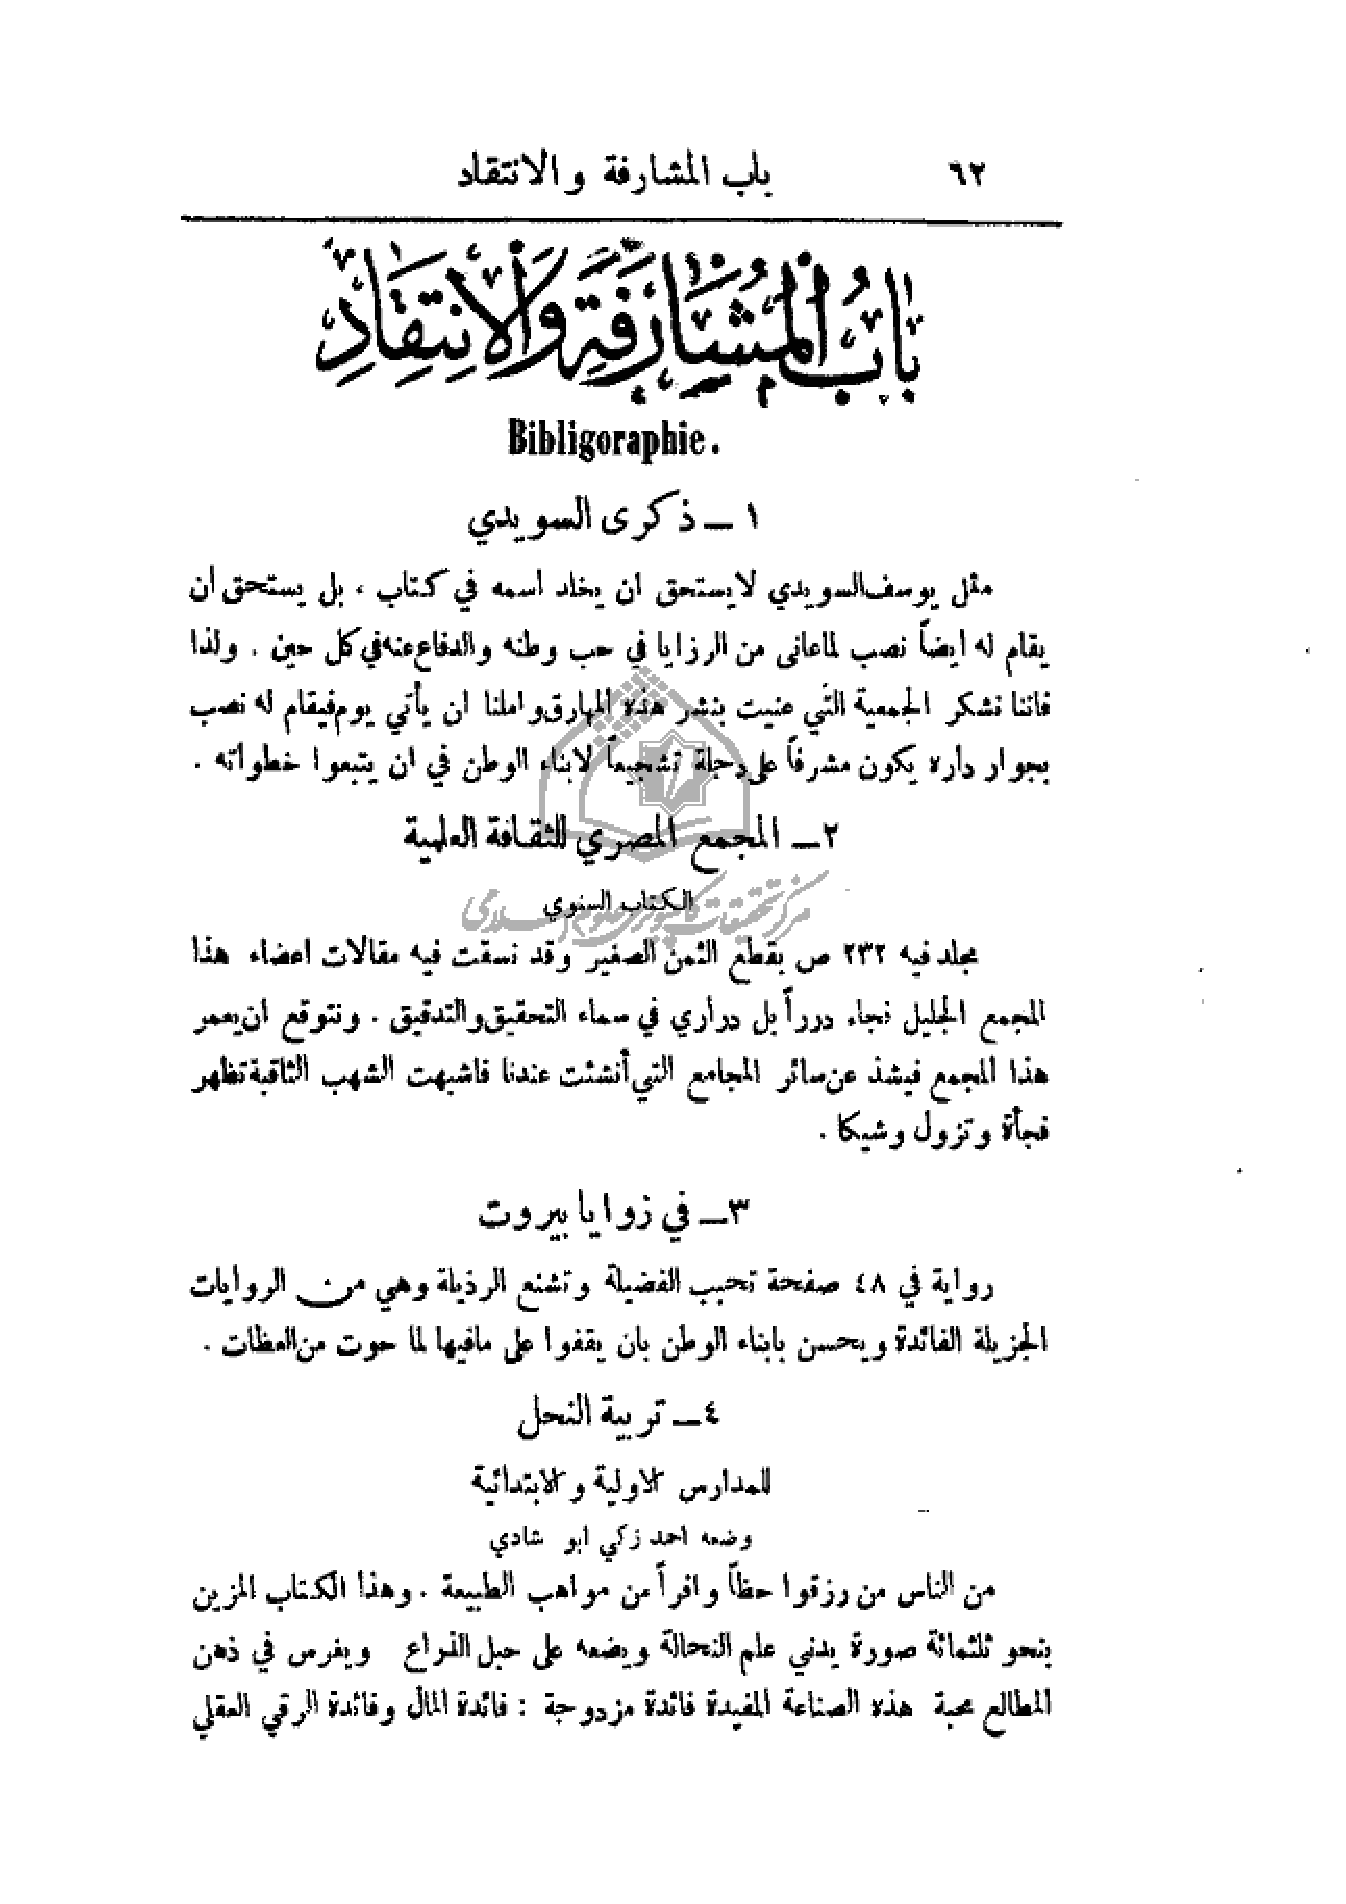 ٦٢
باب المشارفة والانتقاد
بَابُ المُشَارَفَةِ وَالاِنْتِقَادِ
Bibligoraphie.
١ ــ ذكرى السويدي
مثل يوسف السويدي لايستحق ان يخلد اسمه في كتاب ، بل يستحق ان
يقام له ايضاً نصب لماعانى من الرزايا في حب وطنه والدفاع عنه في كل حين . ولذا
فاننا نشكر الجمعية التي عنيت بنشر هذه المهارق واملنا ان يأتي يوم فيقام له نصب
بجوار داره يكون مشرفاً على دجلة تشجيعاً لابناء الوطن في ان يتبعوا خطواته .
٢ــ المجمع المصري للثقافة العلمية
الكتاب السنوي
مركز تحقيقات كامپيوتري علوم اسلامي
مجلد فيه ٢٣٢ ص بقطع الثمن الصغير وقد نسقت فيه مقالات اعضاء هذا
المجمع الجليل فجاء درراً بل دراري في سماء التحقيق والتدقيق . ونتوقع ان يعمر
هذا المجمع فيشذ عن سائر المجامع التي أنشئت عندنا فاشبهت الشهب الثاقبة تظهر
فجأة وتزول وشيكا .
٣ــ في زوايا بيروت
رواية في ٤٨ صفحة تحبب الفضيلة وتشنع الرذيلة وهي من الروايات
الجزيلة الفائدة ويحسن بابناء الوطن بان يقفوا على مافيها لما حوت من العظات .
٤ــ تربية النحل
للمدارس الاولية والابتدائية
وضعه احمد زكي ابو شادي
من الناس من رزقوا حظاً وافراً من مواهب الطبيعة . وهذا الكتاب المزين
بنحو ثلثمائة صورة يدني علم النحالة ويضعه على حبل الذراع ويغرس في ذهن
المطالع محبة هذه الصناعة المفيدة فائدة مزدوجة : فائدة المال وفائدة الرقي العقلي